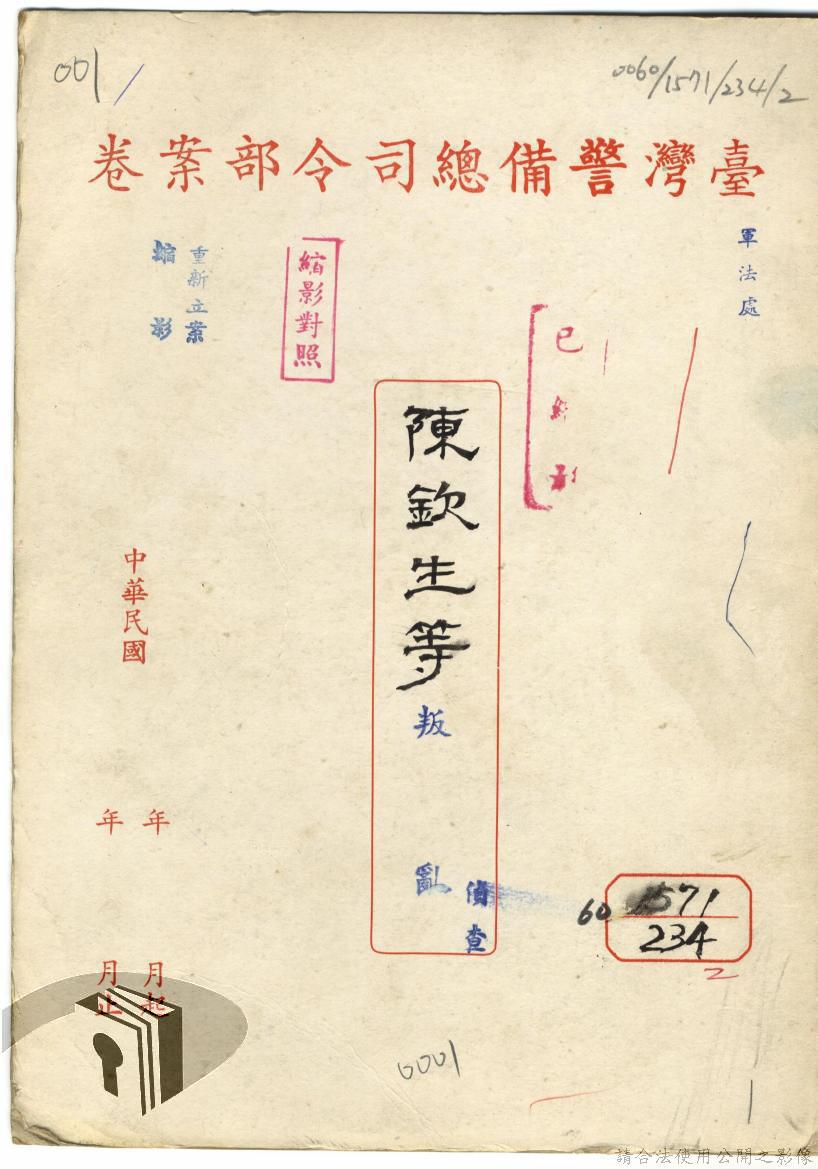 001
0060/1571/234/2
臺灣警備總司令部案卷
軍法處
已縮影
縮影對照
重新立案
縮影
陳欽生等叛亂
偵查
中華民國
年月起
年月止
60 1571
234
2
0001
請合法使用公開之影像